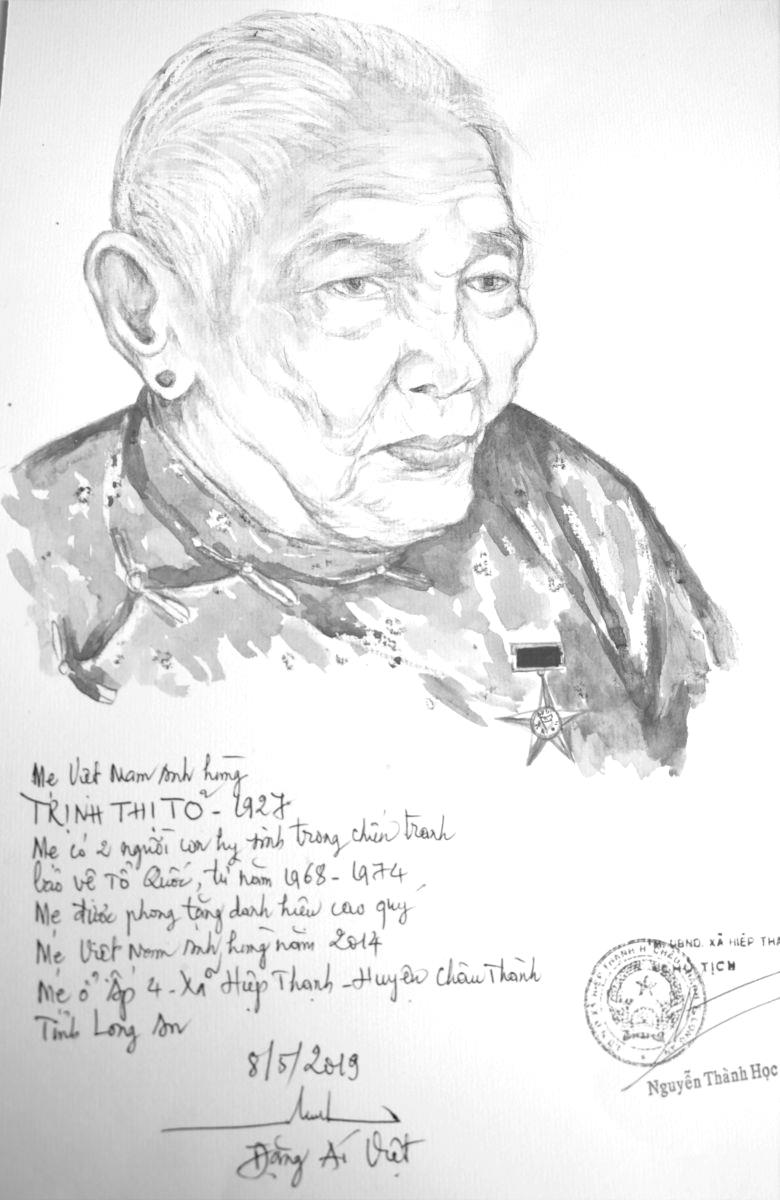 Mẹ Việt Nam Anh hùng
TRỊNH THỊ TỎ - 1927
Mẹ có 2 người con hy sinh trong chiến tranh
bảo vệ Tổ Quốc, từ năm 1968 - 1974
Mẹ được phong tặng danh hiệu cao quý
Mẹ Việt Nam Anh hùng năm 2014
Mẹ ở Ấp 4 - Xã Hiệp Thạnh - Huyện Châu Thành
Tỉnh Long An
8/5/2019
Đặng Ái Việt
UBND. XÃ HIỆP THẠ
CHỦ TỊCH
Nguyễn Thành Học